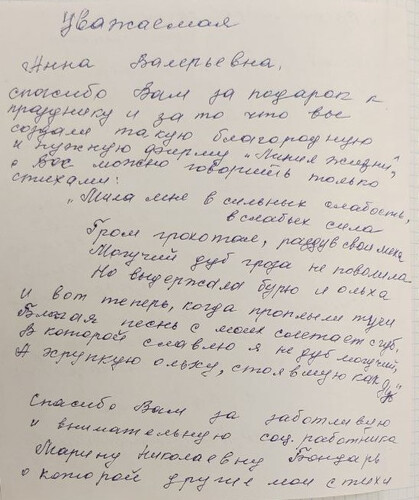 Уважаемая
Анна Валерьевна,
спасибо Вам за подарок к
празднику и за то что вы
создали такую благородную
и нужную фирму "Линия жизни",
о Вас можно говорить только
стихами:
"Мила мне в сильных слабость,
в слабых сила
Гром грохотал, раздув свои меха
Могучий дуб гроза не повалила
Но выдержала бурю и ольха
И вот теперь, когда проплыли тучи
Благая песнь с моих слетает губ,
В которой славлю я не дуб могучий,
А хрупкую ольху, стоявшую как дуб"
Спасибо Вам за заботливую
и внимательную соц. работника
Марину Николаевну Бондарь
о которой другие мои стихи